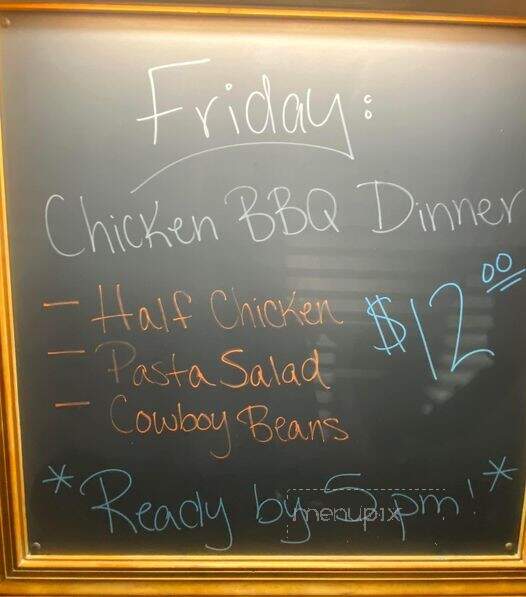 Friday:
Chicken BBQ Dinner
- Half Chicken
- Pasta Salad
- Cowboy Beans
$12.00
*Ready by 5pm!*
menupix